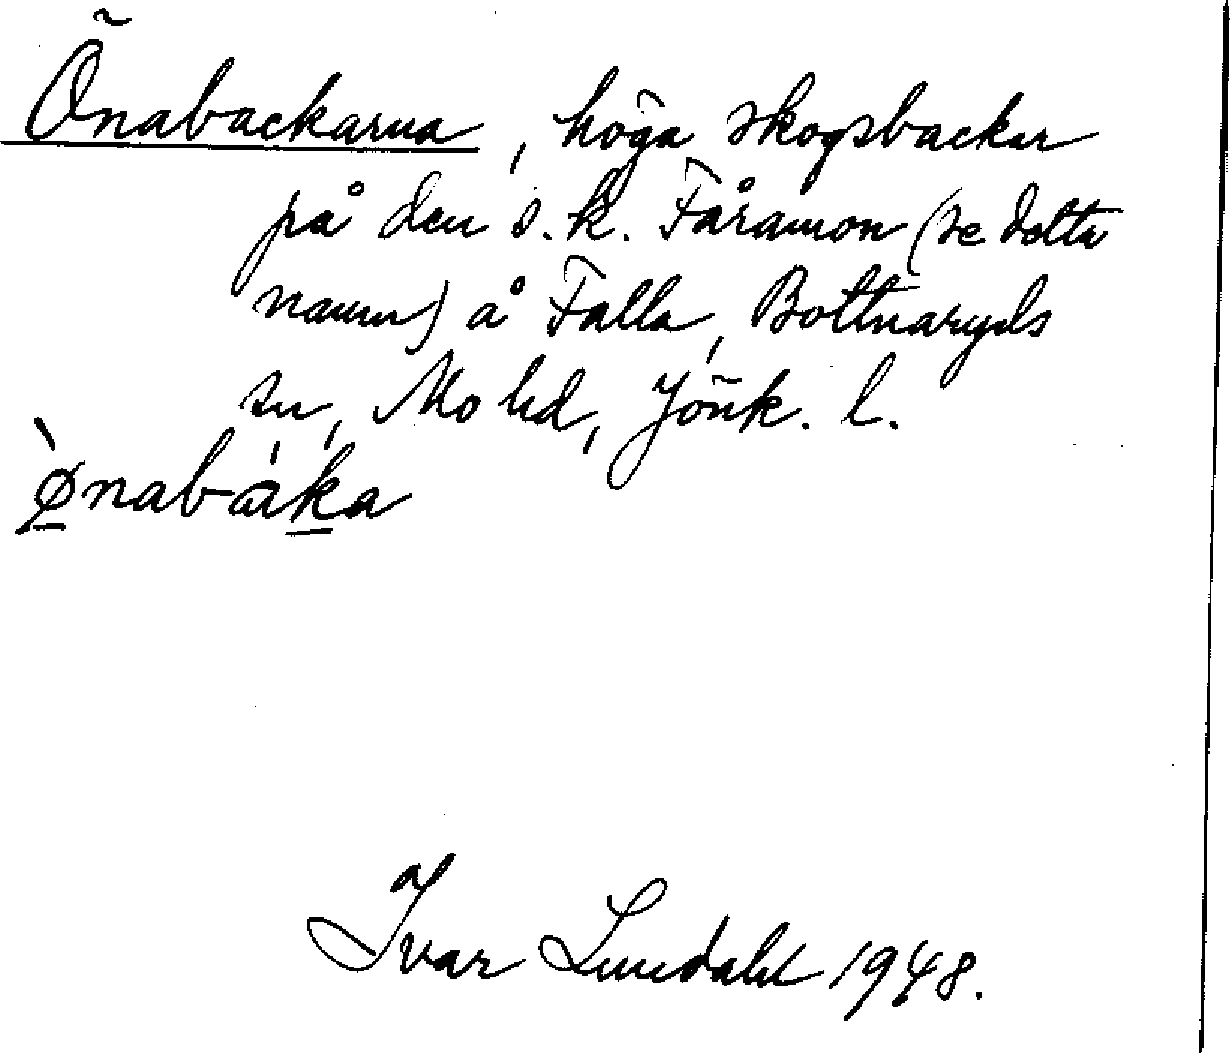 Önabackarna, höga skogsbackar
på den s.k. Fåramon (se detta
namn) å Falla, Bottnaryds
sn, Mo hd, Jönk. l.
ø̀nabáka
Ivar Lundahl 1948.